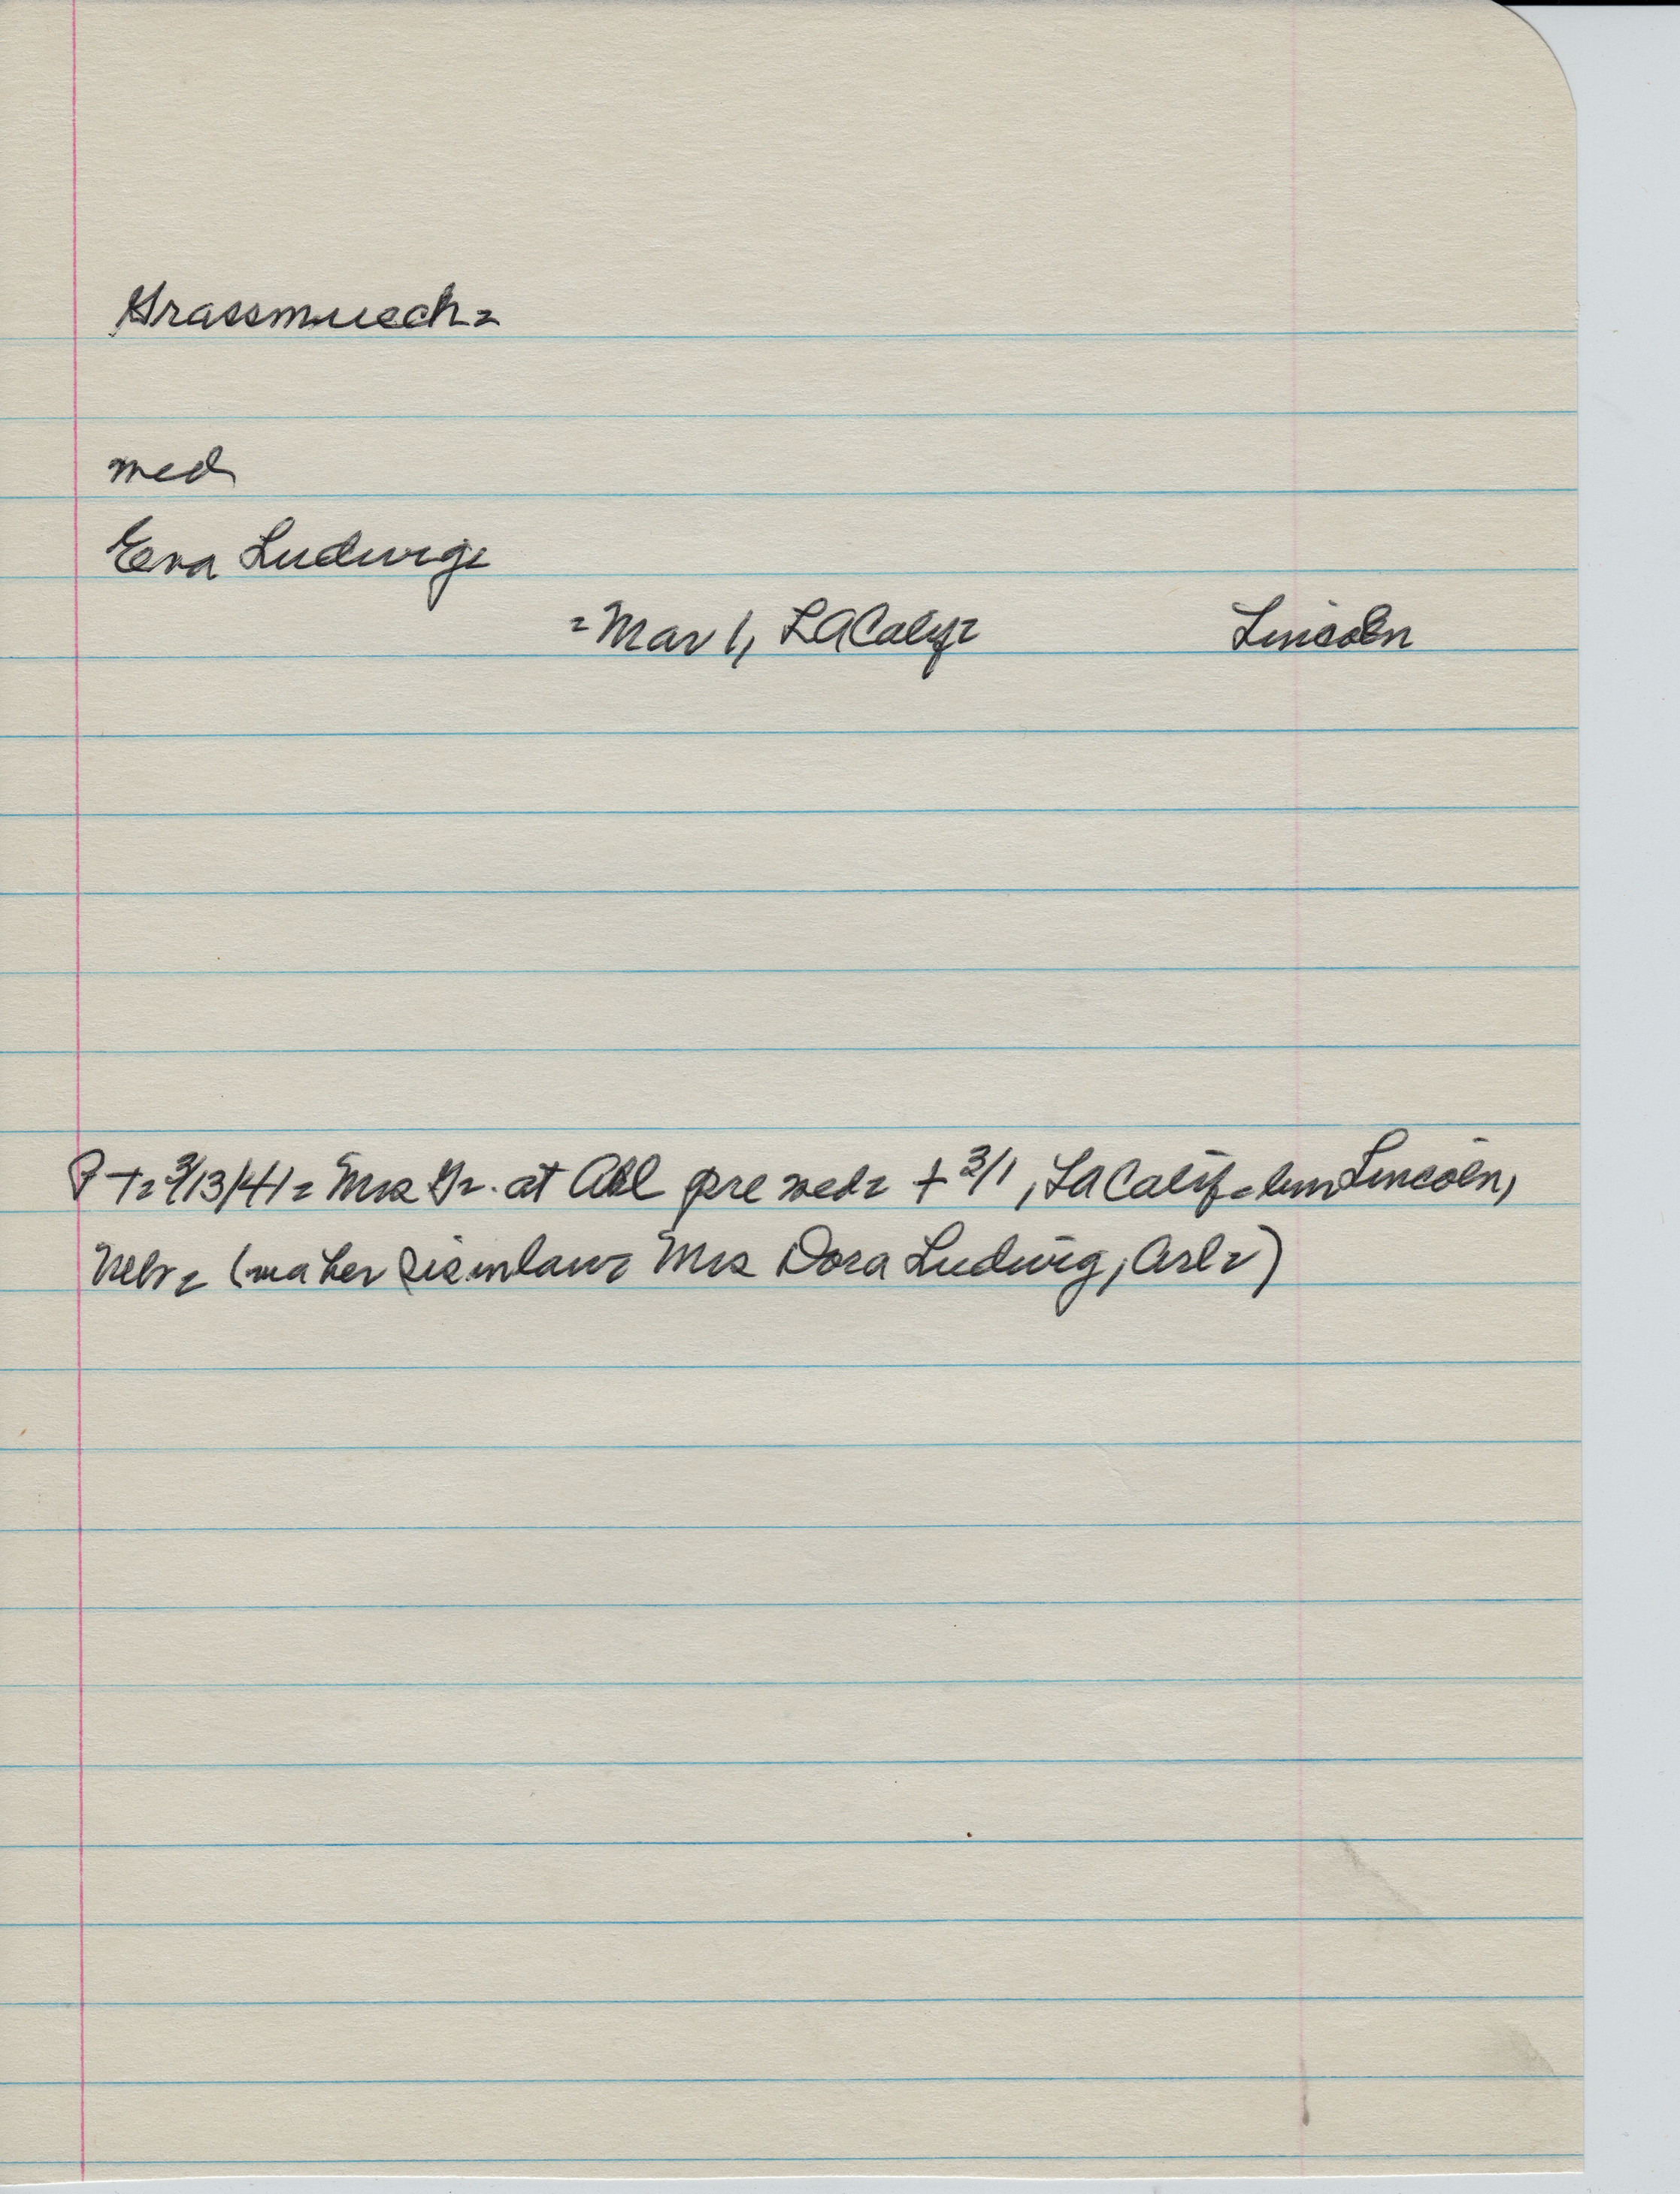 Grassmueck=
med
Eva Ludwig=
=Mar 1, LA Calif= Lincoln
+= 3/13/41= Mrs Gr. at Arl pre wed= + 3/1, LA Calif= bur Lincoln,
Nebr= (ma her sis inlaw= Mrs Dora Ludwig, Arl=)